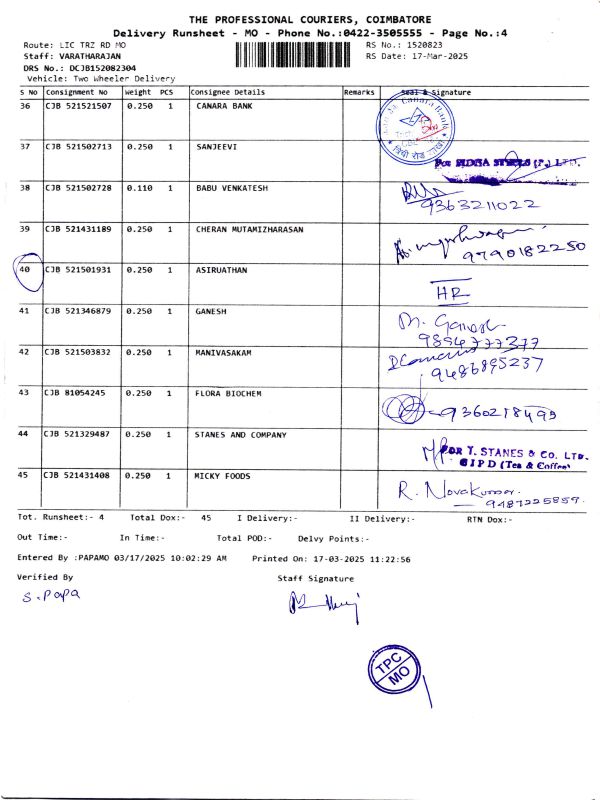 THE PROFESSIONAL COURIERS, COIMBATORE
Delivery Runsheet - MO - Phone No.:0422-3505555 - Page No.:4
Route: LIC TRZ RD MO RS No.: 1520823
Staff: VARATHARAJAN RS Date: 17-Mar-2025
DRS No.: DCJB152082304
Vehicle: Two Wheeler Delivery
S No Consignment No Weight PCS Consignee Details Remarks Seal & Signature
36 CJB 521521507 0.250 1 CANARA BANK
Canara Bank
37 CJB 521502713 0.250 1 SANJEEVI
For
38 CJB 521502728 0.110 1 BABU VENKATESH
9363211022
39 CJB 521431189 0.250 1 CHERAN MUTAMIZHARASAN
9790182250
40 CJB 521501931 0.250 1 ASIRUATHAN
HR
41 CJB 521346879 0.250 1 GANESH
M. Ganesh
42 CJB 521503832 0.250 1 MANIVASAKAM
9486895237
43 CJB 81054245 0.250 1 FLORA BIOCHEM
9360218499
44 CJB 521329487 0.250 1 STANES AND COMPANY
FOR T. STANES & CO. LTD.
CIPD (Tea & Coffee)
45 CJB 521431408 0.250 1 MICKY FOODS
R. Navakumar
9487225859
Tot. Runsheet:- 4 Total Dox:- 45 I Delivery:- II Delivery:- RTN Dox:-
Out Time:- In Time:- Total POD:- Delvy Points:-
Entered By :PAPAMO 03/17/2025 10:02:29 AM Printed On: 17-03-2025 11:22:56
Verified By Staff Signature
S. Papa
TPC
MO